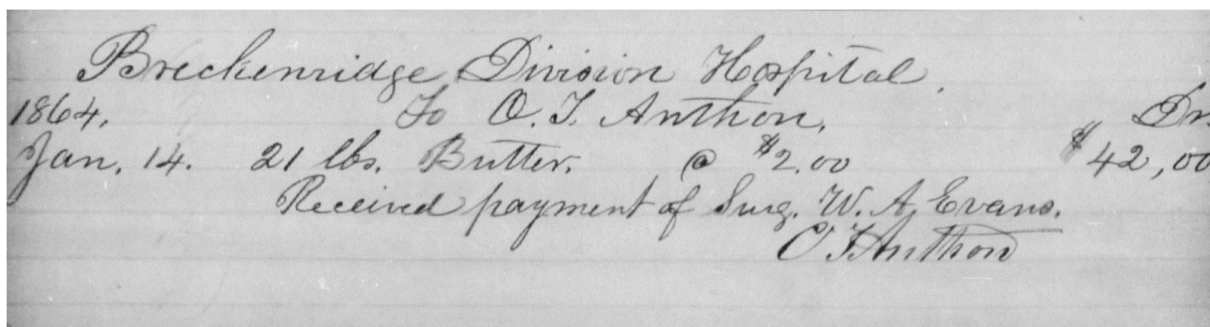 Breckenridge Division Hospital.
1864. To O. T. Anthon, Dr
Jan. 14. 21 lbs. Butter. @ $2.00 $42,00
Received payment of Surg. W. A. Evans.
O T Anthon